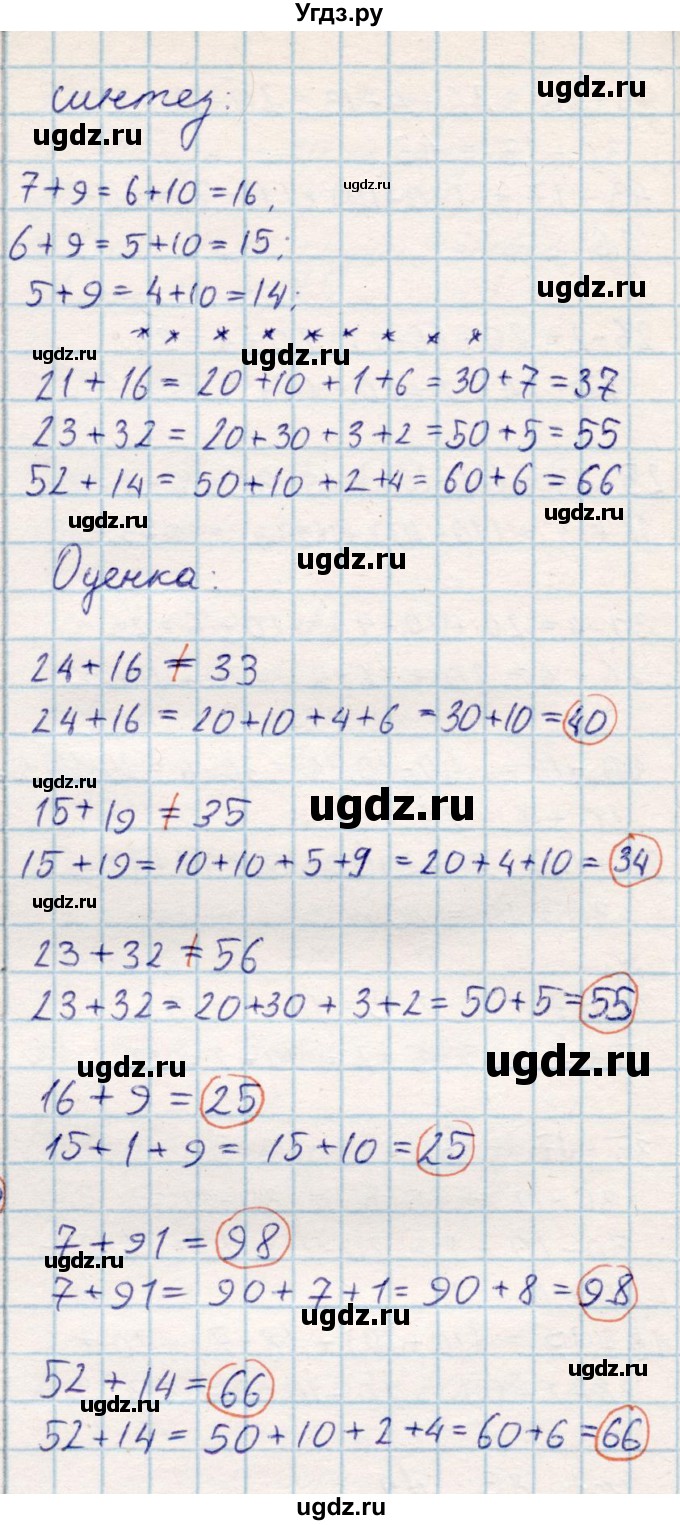 Угдз.ру
ugdz.ru
синтез:
ugdz.ru
7+9=6+10=16;
ugdz.ru
6+9=5+10=15;
5+9=4+10=14;
ugdz.ru
* * * * * * * * *
ugdz.ru
ugdz.ru
21+16=20+10+1+6=30+7=37
23+32=20+30+3+2=50+5=55
52+14=50+10+2+4=60+6=66
ugdz.ru
ugdz.ru
ugdz.ru
Оценка:
24+16≠33
24+16=20+10+4+6=30+10=40
ugdz.ru
ugdz.ru
15+19≠35
15+19=10+10+5+9=20+4+10=34
ugdz.ru
23+32≠56
23+32=20+30+3+2=50+5=55
ugdz.ru
ugdz.ru
16+9=25
15+1+9=15+10=25
7+91=98
ugdz.ru
7+91=90+7+1=90+8=98
ugdz.ru
ugdz.ru
52+14=66
ugdz.ru
52+14=50+10+2+4=60+6=66
ugdz.ru